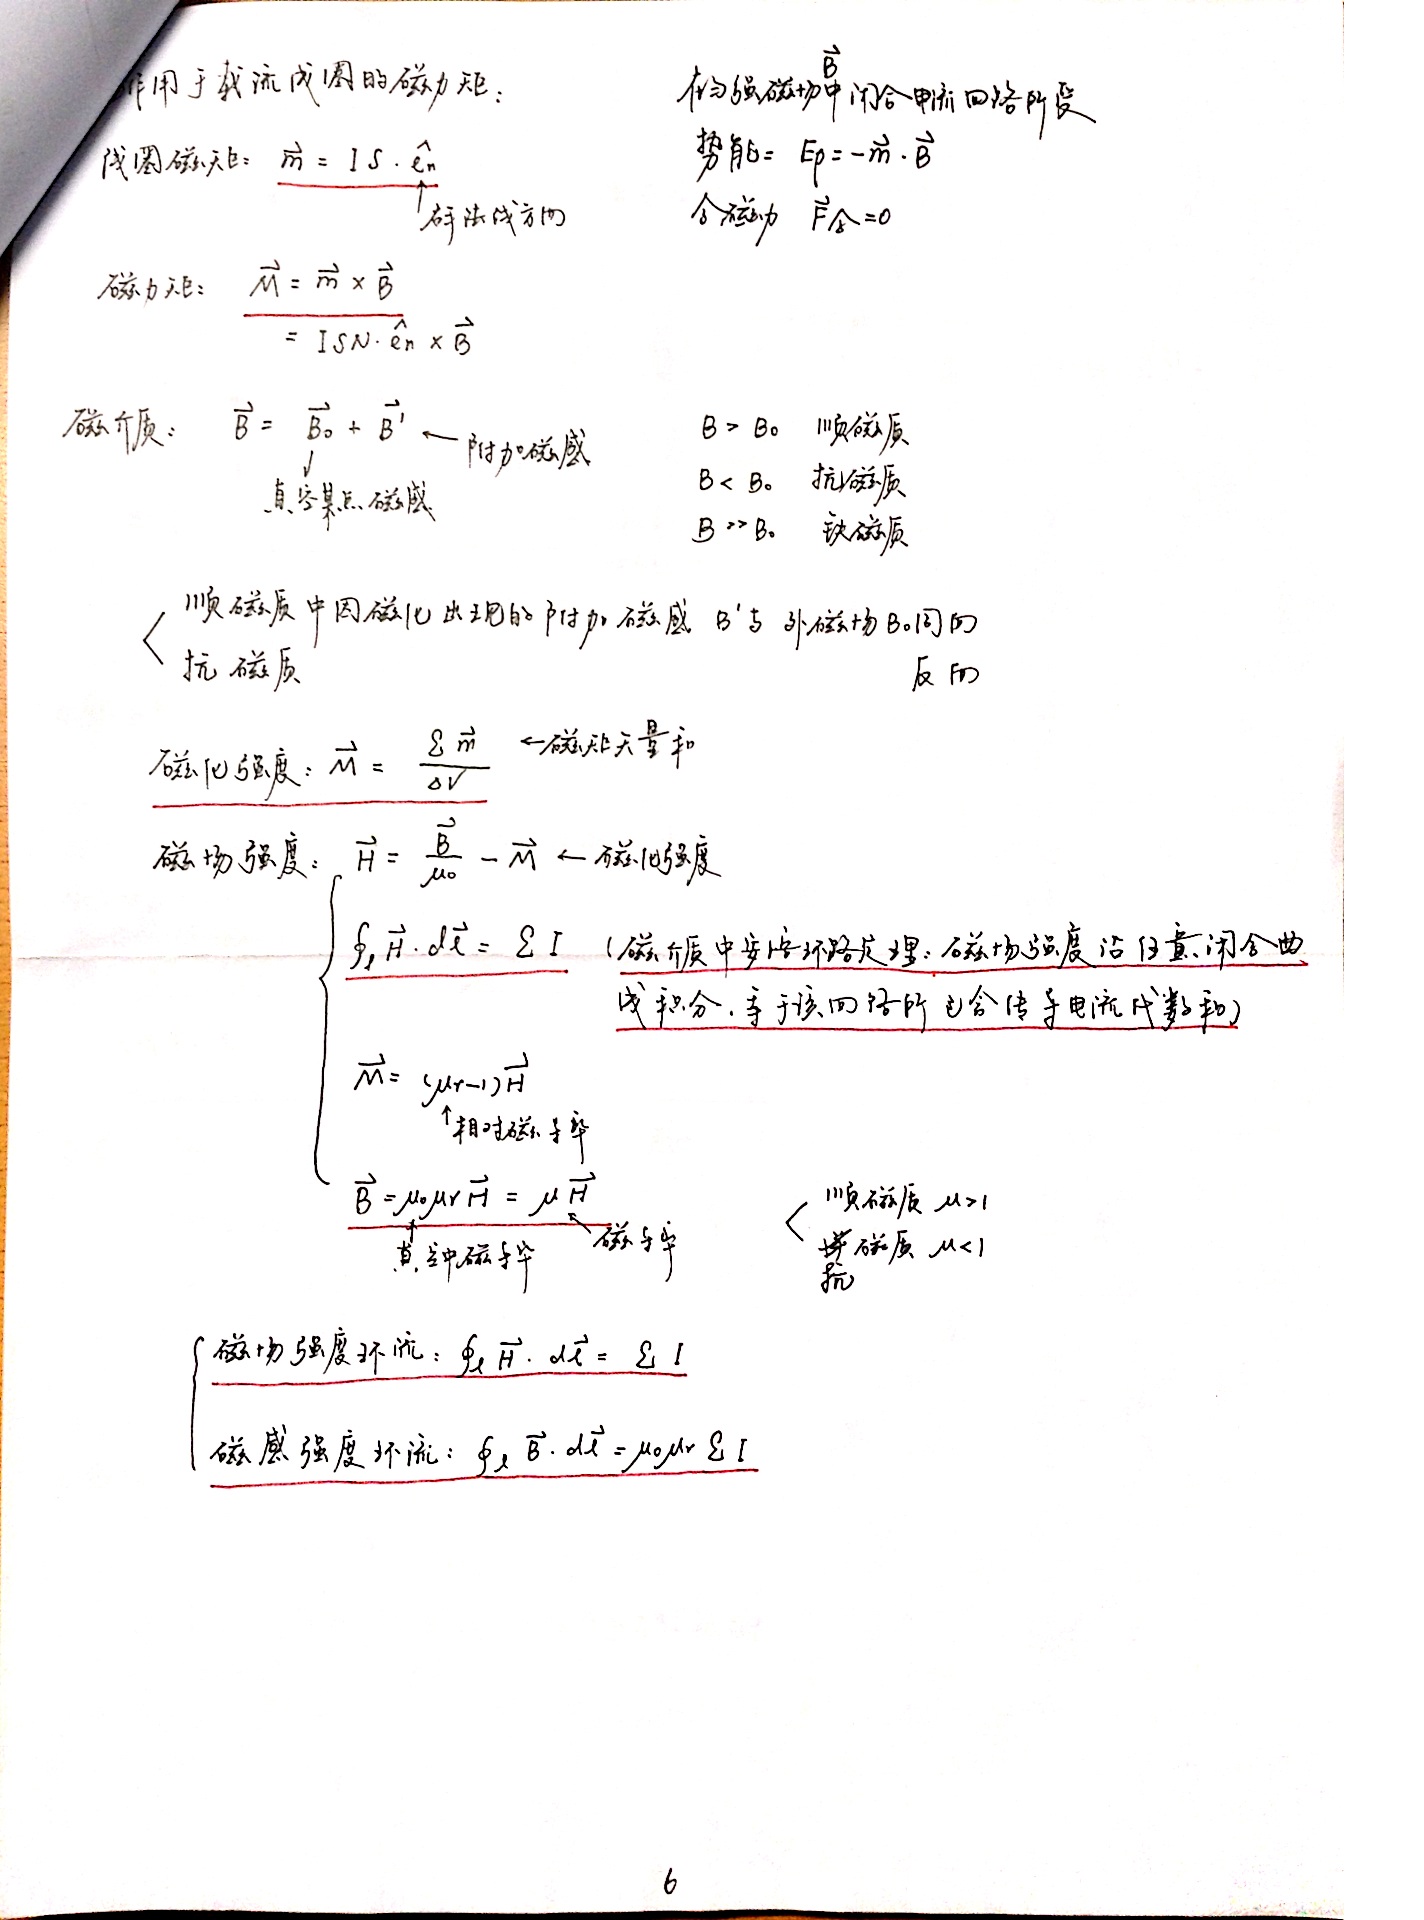 作用于载流线圈的磁力矩：
线圈磁矩： m⃗ = IS · ên
↑ 法线方向
磁力矩： M⃗ = m⃗ × B⃗
= ISN · ên × B⃗
在匀强磁场B⃗中闭合电流回路所受
势能= Ep = -m⃗ · B⃗
合磁力 F⃗合 = 0
磁介质： B⃗ = B⃗₀ + B⃗' ← 附加磁感
↓
真空某点磁感
B > B₀ 顺磁质
B < B₀ 抗磁质
B >> B₀ 铁磁质
顺磁质中因磁化出现的附加磁感 B'与外磁场B₀同向
抗磁质 反向
磁化强度： M⃗ = Σm⃗ / ΔV ← 磁矩矢量和
磁场强度： H⃗ = B⃗/μ₀ - M⃗ ← 磁化强度
∮ₗ H⃗ · dl⃗ = ΣI （磁介质中安培环路定理：磁场强度沿任意闭合曲
线积分，等于该回路所包含传导电流代数和）
M⃗ = (μr-1)H⃗
↑相对磁导率
B⃗ = μ₀μrH⃗ = μH⃗
真空中磁导率 磁导率
顺磁质 μ>1
抗磁质 μ<1
磁场强度环流： ∮ₗ H⃗ · dl⃗ = ΣI
磁感强度环流： ∮ₗ B⃗ · dl⃗ = μ₀μrΣI
6